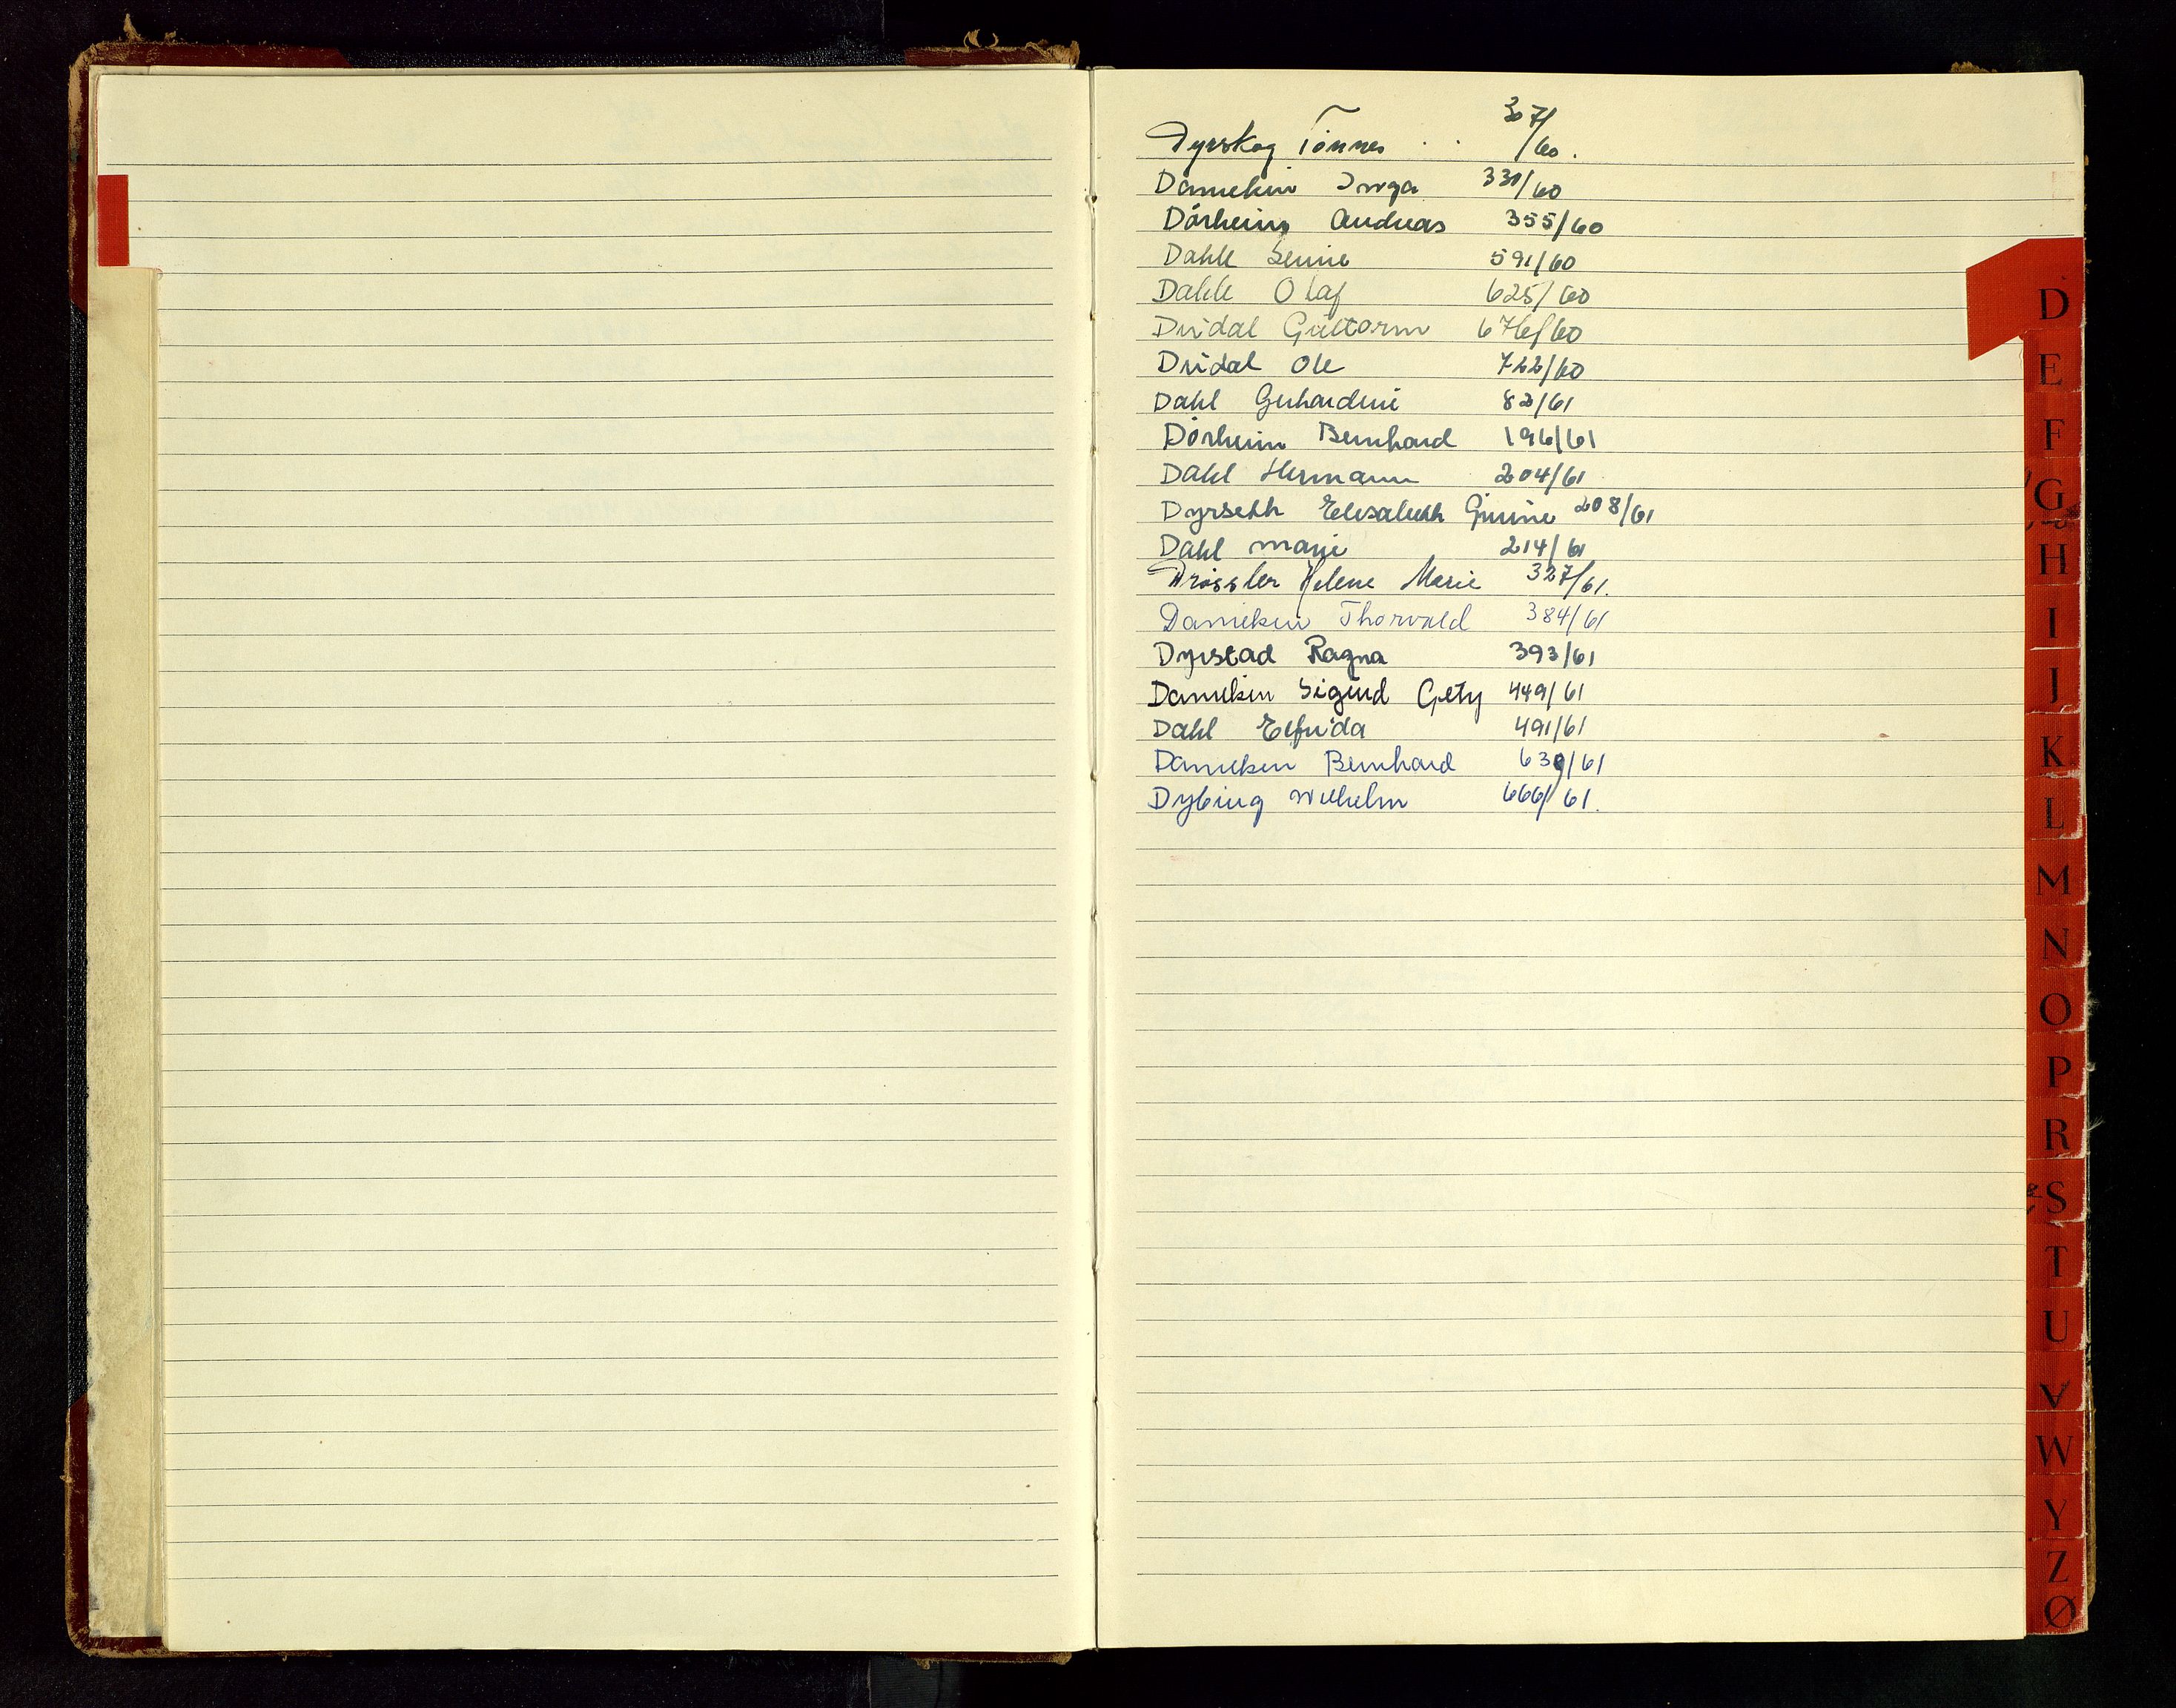 Dyrskog Tønnes . . 307/60.
Danielsen Inga 330/60
Dørheim Andreas 355/60
Dahle Senie 591/60
Dahle Olaf 625/60
Dridal Guttorm 676/60
Dridal Ole 722/60
Dahl Gerhardine 82/61
Dørheim Bernhard 196/61
Dahl Hermann 204/61
Dyrseth Elisabeth Gurine 208/61
Dahl Marie 214/61
Drössler Helene Marie 327/61.
Danielsen Thorvald 384/61
Dyrstad Ragna 393/61
Danielsen Sigurd Gety 449/61
Dahl Elfrida 491/61
Danielsen Bernhard 639/61
Dybing Wilhelm 666/61.
D
E
F
G
H
I
J
K
L
M
N
O
P
R
S
T
U
V
W
Y
Z
Ø